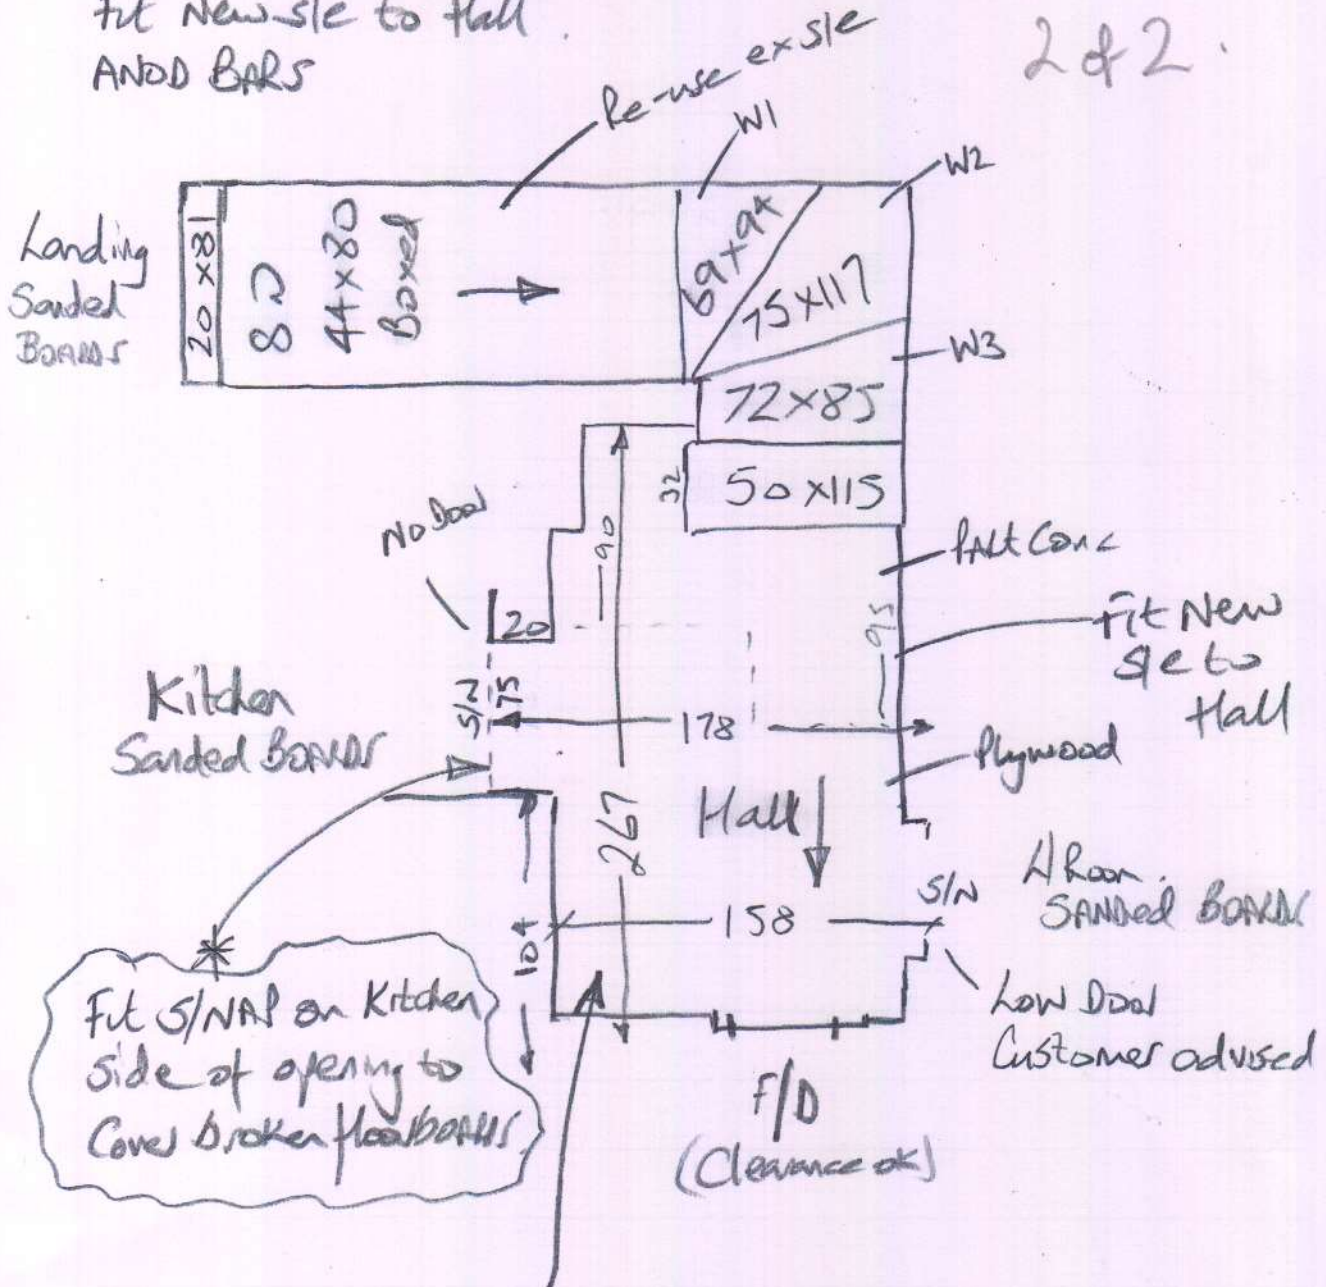 Fit New s/e to Hall.
ANOD BARS
2 of 2.
Re-use ex s/e
W1
W2
W3
Landing
Sanded
BOARDS
20 x 81
8D
44x80
Boxed
69x94
75x117
72x85
50x115
32
No Door
20
90
Part Conc
95
Fit New
s/e to
Hall
Kitchen
Sanded BOARDS
S/N
75
178
Plywood
Hall
267
158
104
S/N
SANDED BOARDS
Low Door
Customer advised
Fit S/NAP on Kitchen
side of opening to
Cover broken floorboards
F/D
(Clearance ok)